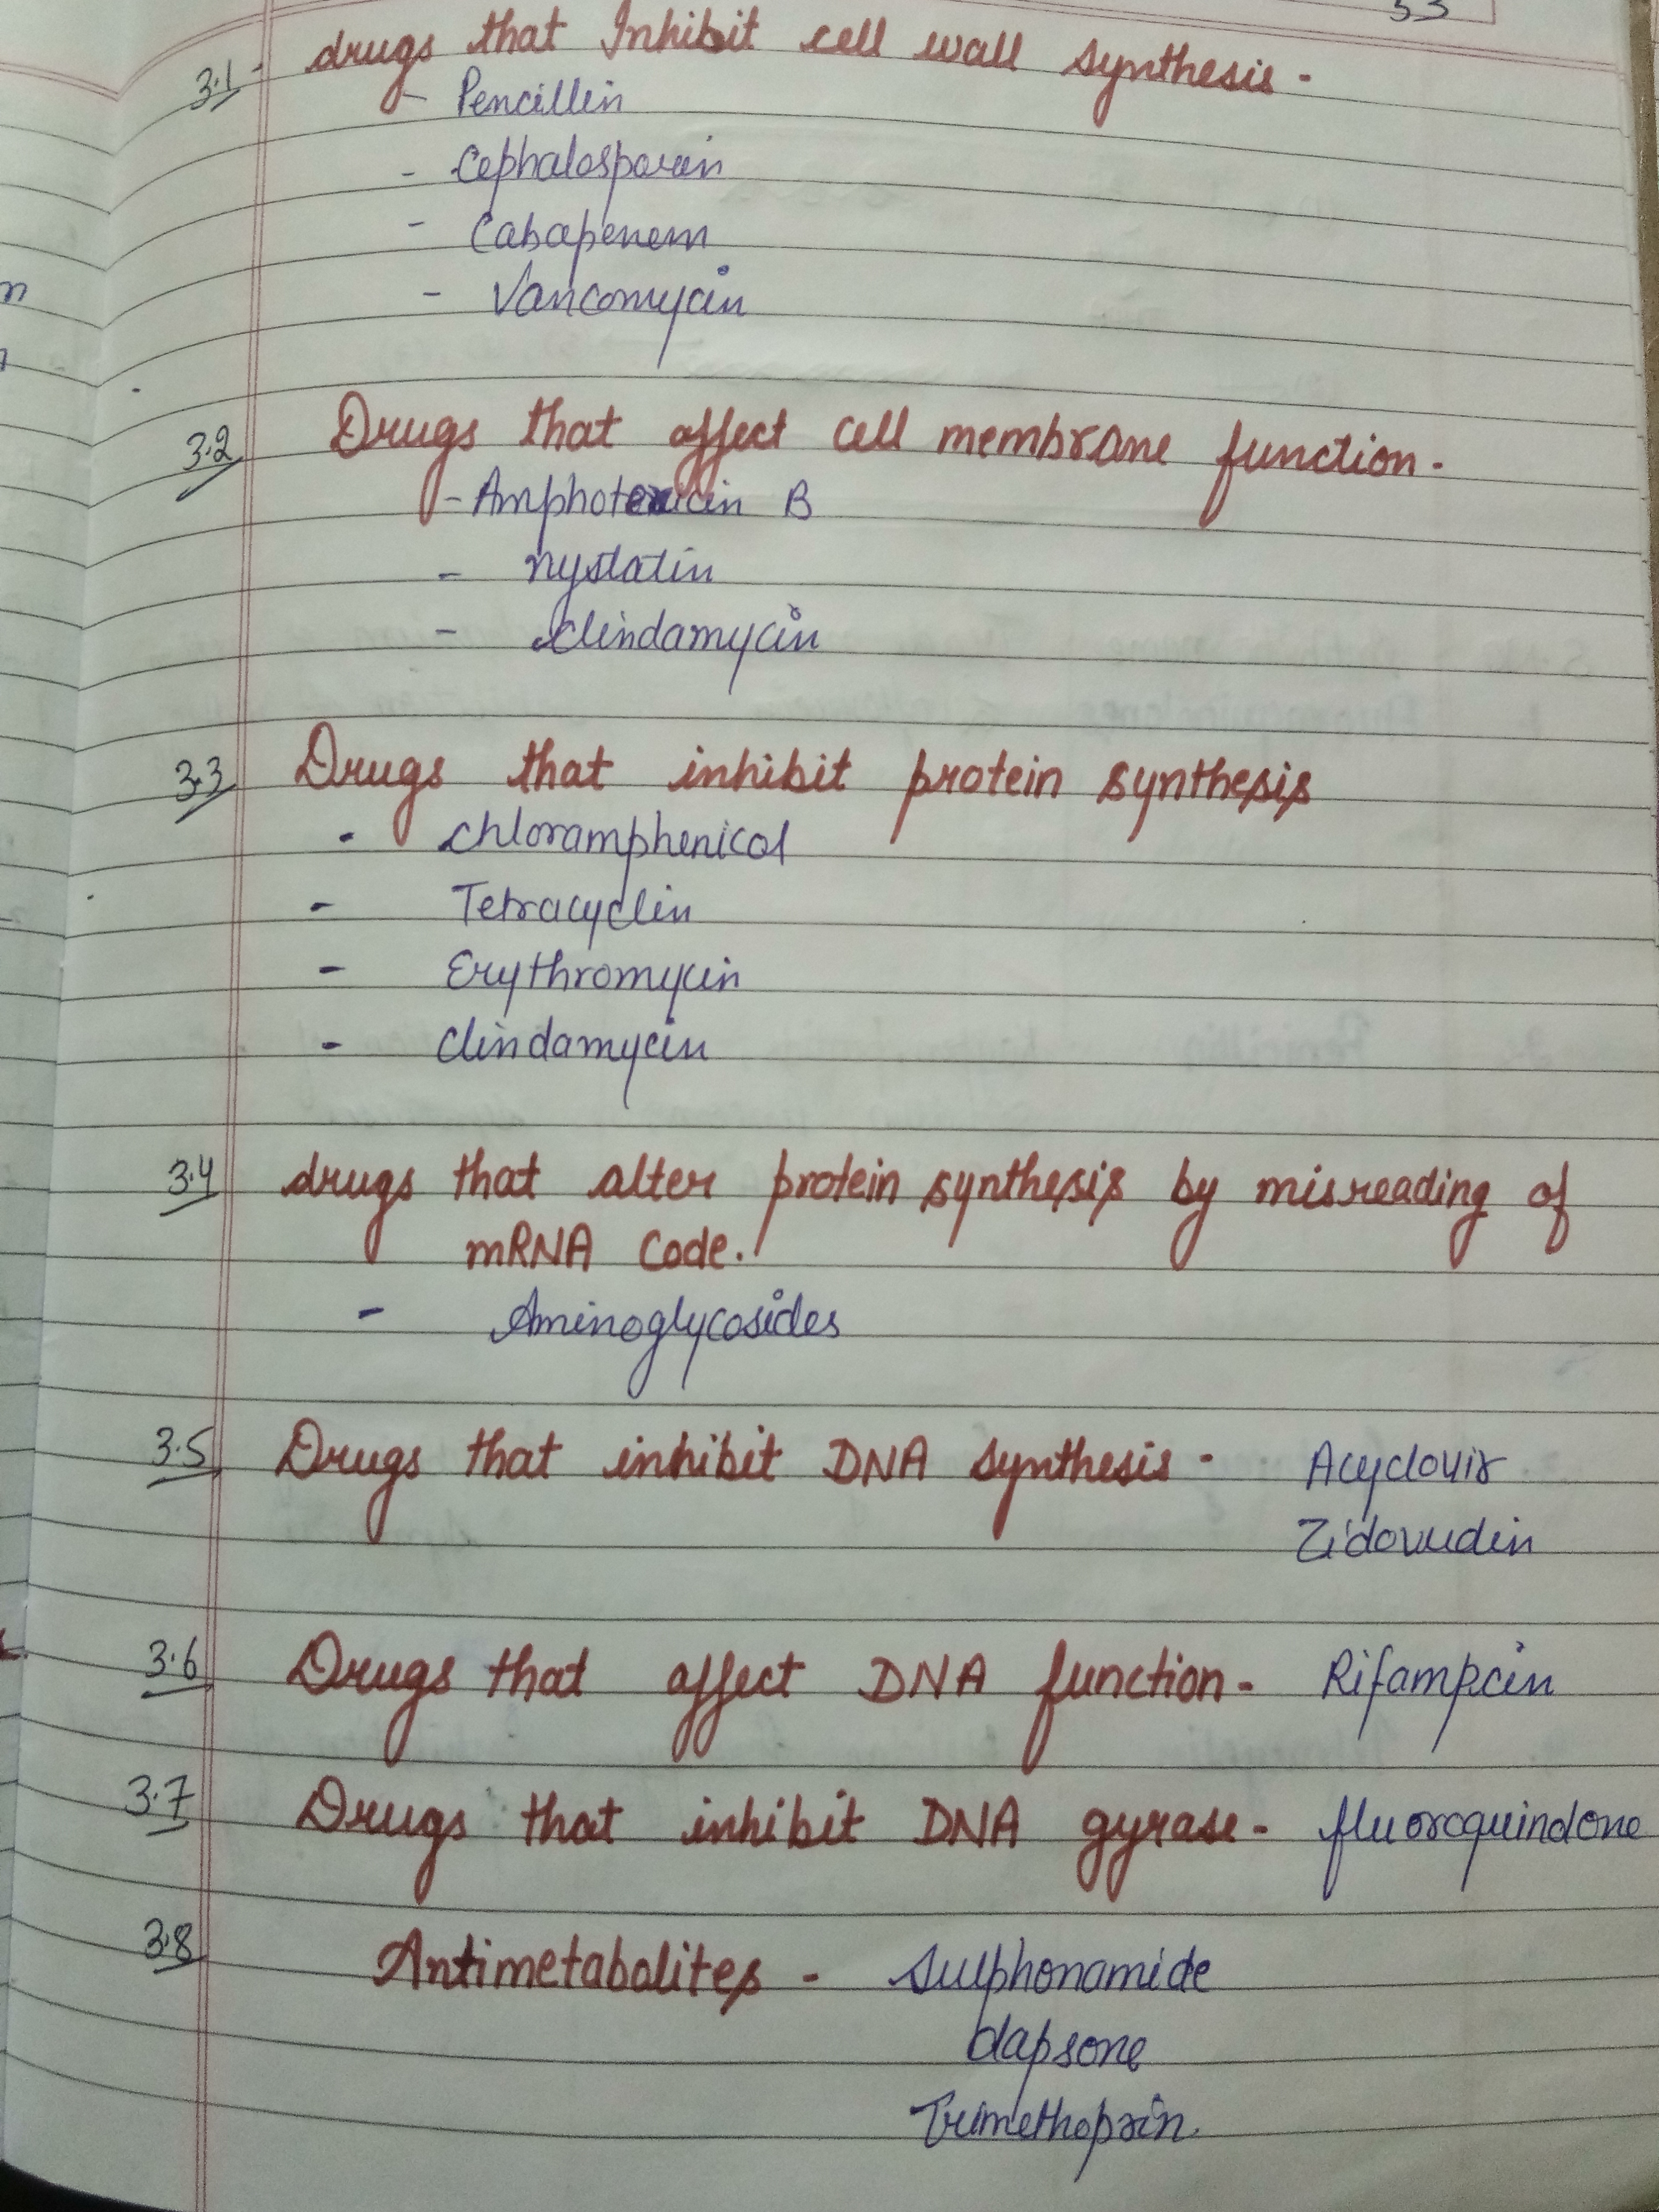 53
3.1 - drugs that Inhibit cell wall synthesis -
- Pencillin
- Cephalosporin
- Cabapenem
- Vancomycin
3.2 Drugs that affect cell membrane function -
- Amphotericin B
- nystatin
- clindamycin
3.3 Drugs that inhibit protein synthesis
- chloramphenicol
- Tetracyclin
- Erythromycin
- Clindamycin
3.4 drugs that alter protein synthesis by misreading of
mRNA Code.
- Aminoglycosides
3.5 Drugs that inhibit DNA synthesis - Acyclovir
Zidovudin
3.6 Drugs that affect DNA function - Rifampcin
3.7 Drugs that inhibit DNA gyrase - fluoroquindone
3.8 Antimetabolites - Sulphonamide
dapsone
Trimethoprin.